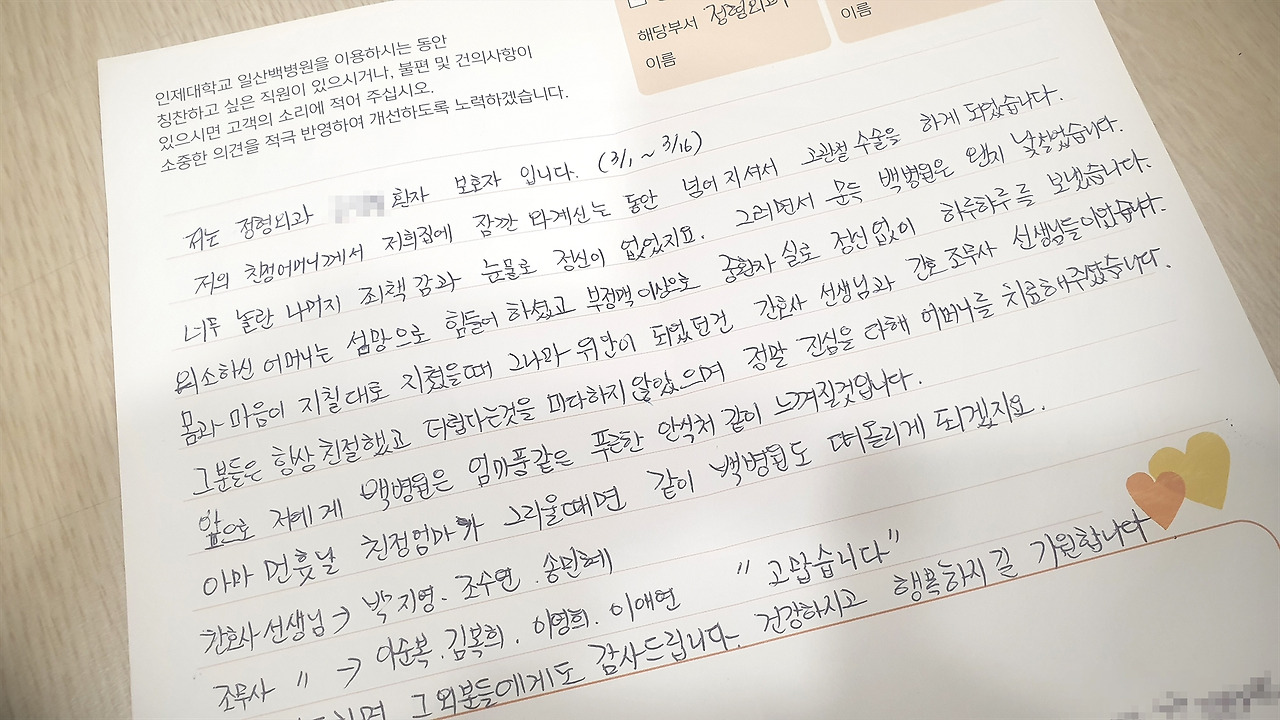 해당부서 정형외과
이름
이름
인제대학교 일산백병원을 이용하시는 동안
칭찬하고 싶은 직원이 있으시거나, 불편 및 건의사항이
있으시면 고객의 소리에 적어 주십시오.
소중한 의견을 적극 반영하여 개선하도록 노력하겠습니다.
저는 정형외과 환자 보호자 입니다. (3/1 ~ 3/16)
저의 친정어머니께서 저희집에 잠깐 와계신는 동안 넘어지셔서 고관절 수술을 하게 되었습니다.
너무 놀란 나머지 죄책감과 눈물로 정신이 없었지요. 그러면서 문득 백병원은 왠지 낯설었습니다.
왜소하신 어머니는 섬망으로 힘들어 하셨고 부정맥 이상으로 중환자실로 정신없이 하루하루를 보냈습니다.
몸과 마음이 지칠대로 지쳤을때 그나마 위안이 되었던건 간호사 선생님과 간호조무사 선생님들이였습니다.
그분들은 항상 친절했고 더럽다는것을 마다하지 않았으며 정말 진심을 다해 어머니를 치료해주셨습니다.
앞으로 저에게 백병원은 엄마품같은 푸근한 안식처 같이 느껴질것입니다.
아마 먼훗날 친정엄마가 그리울때면 같이 백병원도 떠올리게 되겠지요.
간호사 선생님 → 박지영. 조수연. 송민혜
조무사 〃 → 이순복. 김복희. 이영희. 이애연 " 고맙습니다"
그외분들에게도 감사드립니다. 건강하시고 행복하시길 기원합니다